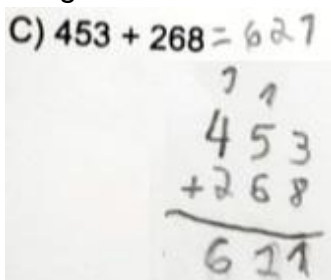 C) 453 + 268 = 621
1 1
453
+268
621